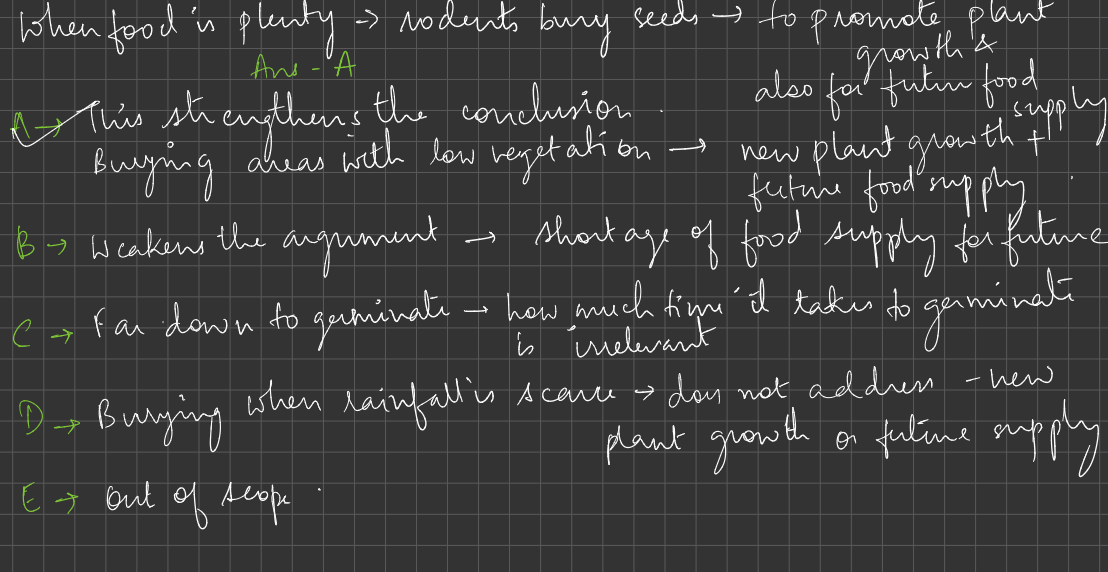 When food is plenty → rodents bury seeds → to promote plant
growth &
also for future food
supply
Ans - A
A → This strengthens the conclusion.
Burying areas with low vegetation → new plant growth +
future food supply.
B → Weakens the argument → shortage of food supply for future
C → Far down to germinate → how much time it takes to germinate
is irrelevant
D → Burying when rainfall is scarce → does not address - new
plant growth or future supply
E → Out of scope.